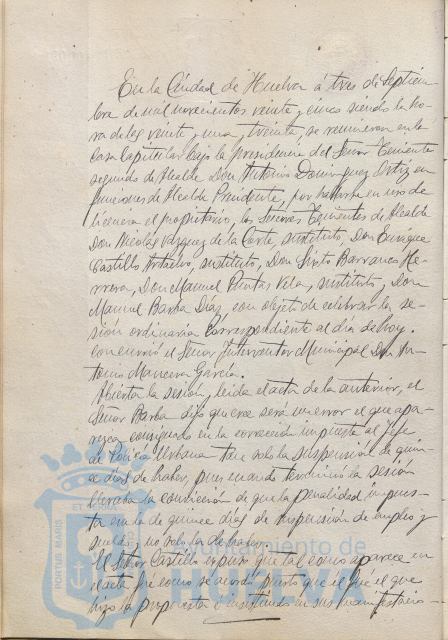 En la Ciudad de Huelva á tres de Septiem-
bre de mil novecientos veinte y cinco siendo la ho-
ra de las veinte y una y treinta, se reunieron en la
Casa Capitular bajo la presidencia del Señor Teniente
segundo de Alcalde Don Antonio Dominguez Ortiz en
funciones de Alcalde Presidente, por hallarse en uso de
licencia el propietario, los Señores Tenientes de Alcalde
Don Nicolás Vazquez de la Corte, sustituto, Don Enrique
Castillo, sustituto, Don Sixto Barranco He-
rrera, Don Manuel Puntas Vela, sustituto y Don
Manuel Barba Díaz, con objeto de celebrar la se-
sión ordinaria correspondiente al dia de hoy.
Concurrió el Señor Interventor Municipal Don An-
tonio Mancera García.
Abierta la sesión, leida el acta de la anterior, el
Señor Barba dijo que cree será un error el que apa-
rezca consignado en la corrección impuesta al Jefe
de Policia Urbana tan solo la suspensión de quin-
ce días de haber, pues cuando terminó la sesión
llevaba la convicción de que la penalidad impues-
ta era la de quince días de suspensión de empleo y
sueldo y no solo la de haber.
El Señor Castillo expuso que tal como aparece en
el acta fué como se acordó, puesto que él fué el que
hizo la propuesta é insistiendo en sus manifestacio-
PORTUS MARIS
ET TERRAE
Ayuntamiento de
HUELVA